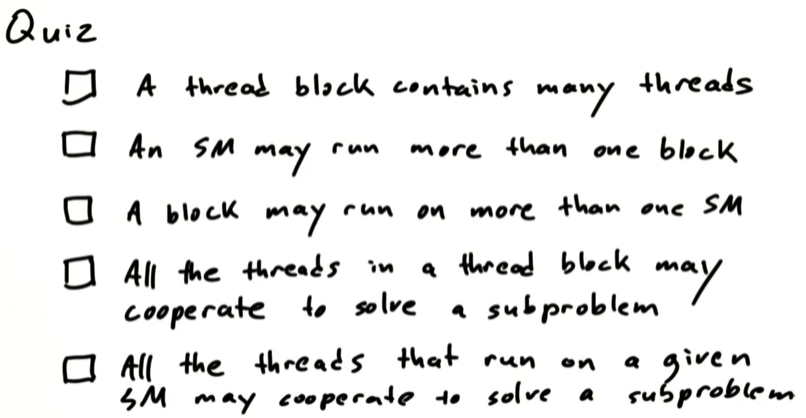 Quiz
A thread block contains many threads
An SM may run more than one block
A block may run on more than one SM
All the threads in a thread block may
cooperate to solve a subproblem
All the threads that run on a given
SM may cooperate to solve a subproblem